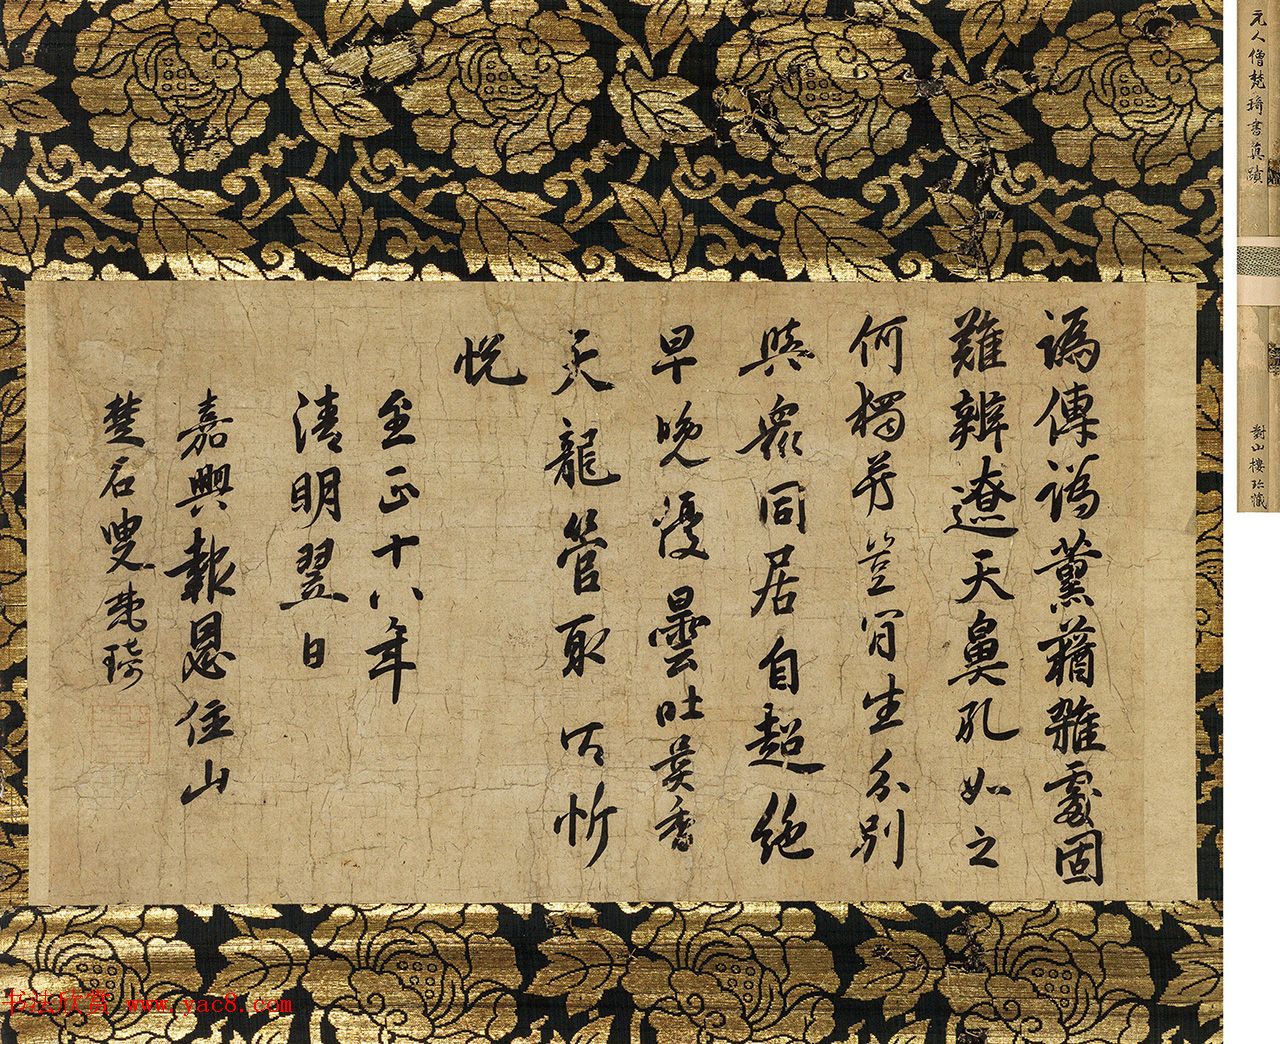 譌傳譌薰蕕雜處固
難辨遼天鼻孔如之
何獨芳豈肯生分別
與衆同居自超絕
早晚優曇吐異香
天龍管取忻
悅
至正十八年
清明翌日
嘉興報恩住山
楚石叟梵琦
元人僧梵琦書真蹟
對山樓珍藏
书法欣赏 www.yac8.com